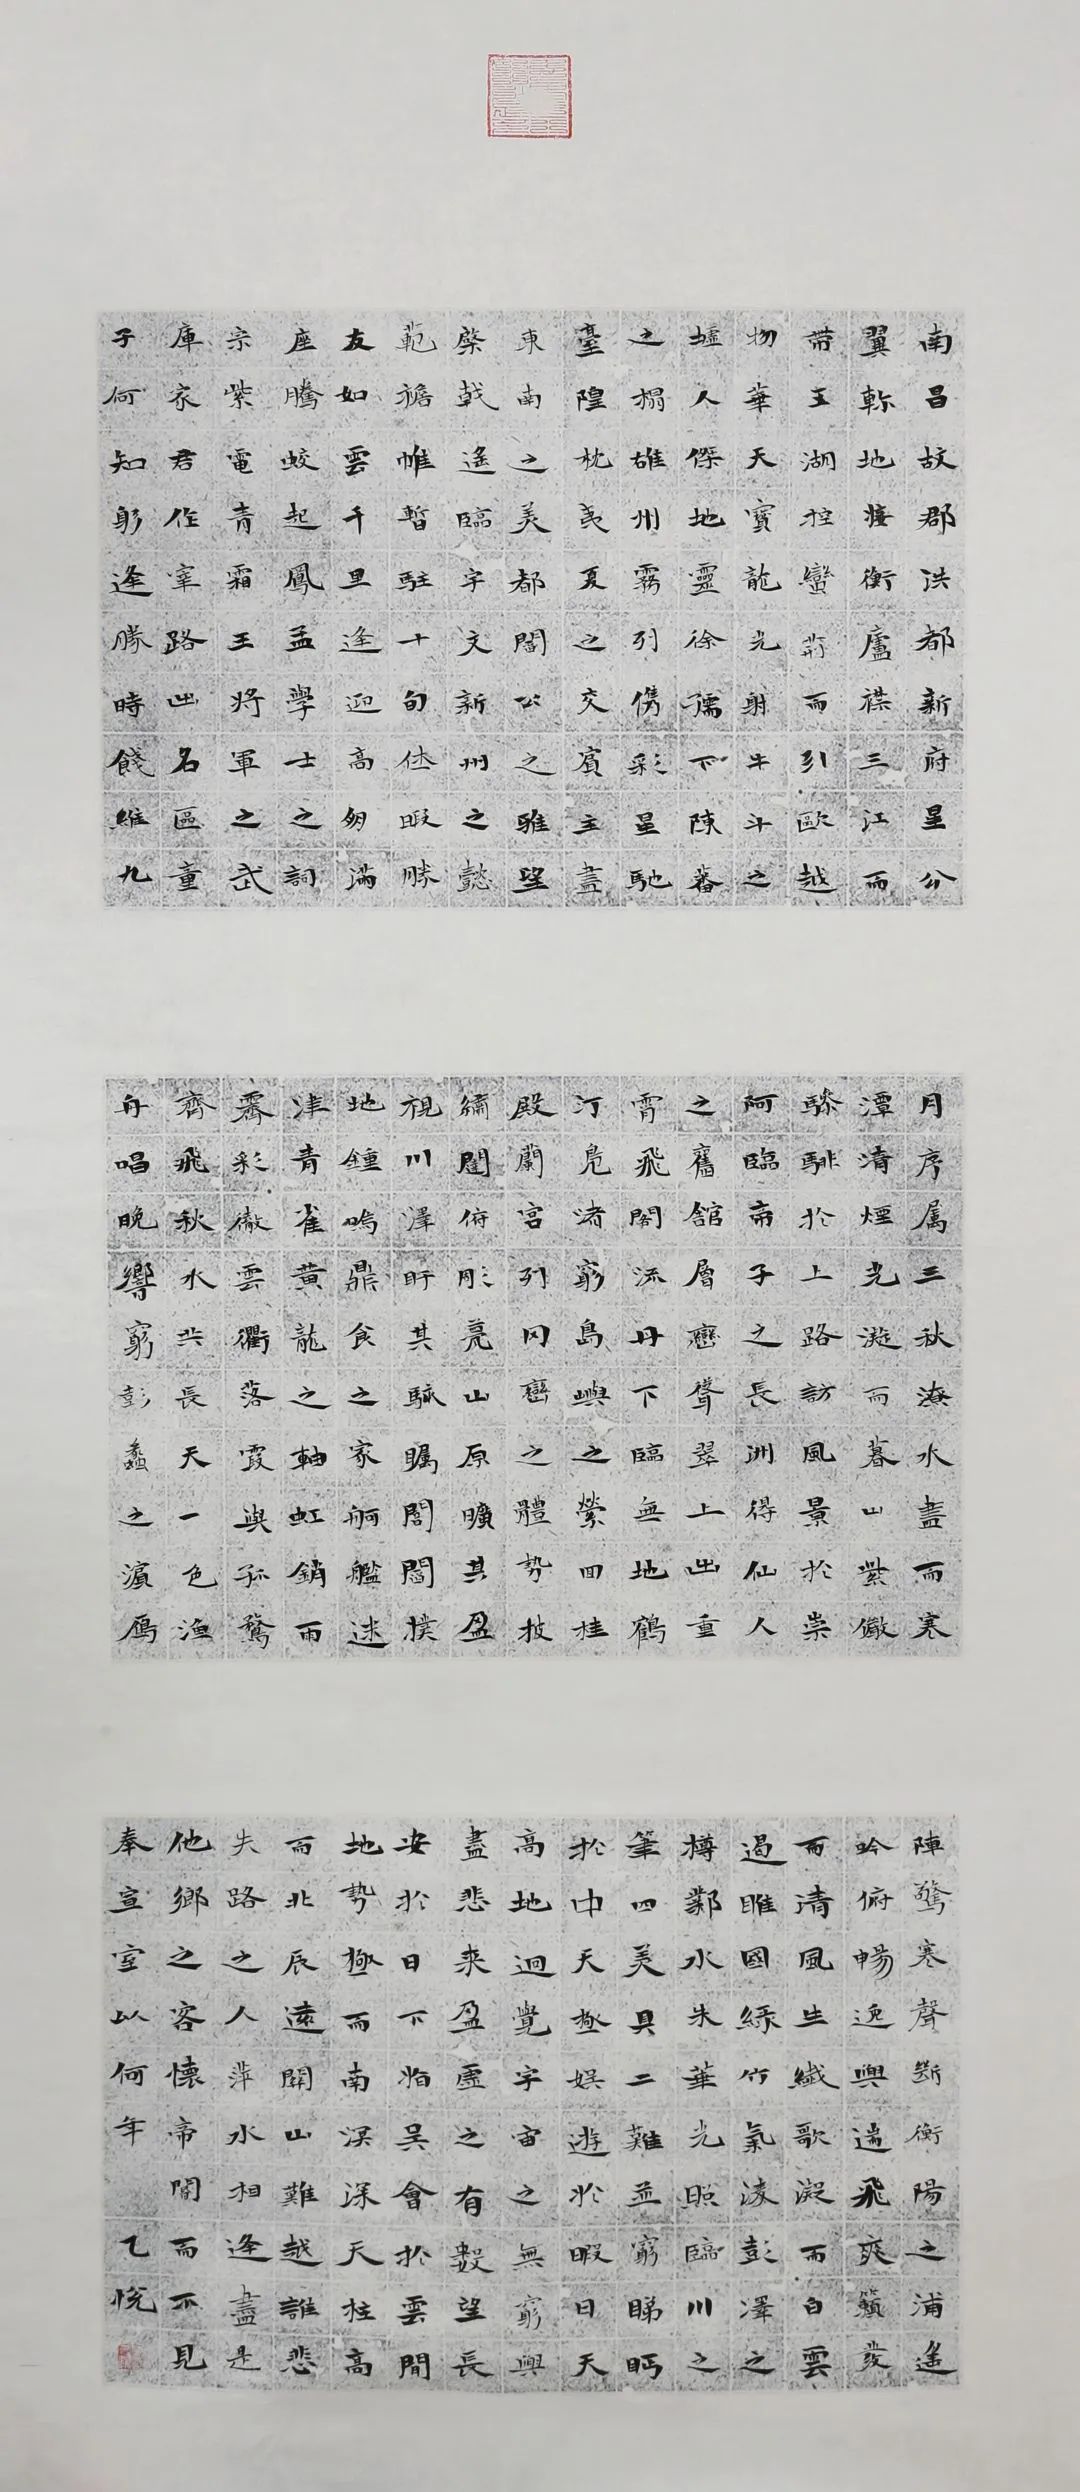 南昌故郡洪都新府星分
翼軫地接衡廬襟三江而
帶五湖控蠻荊而引歐越
物華天寶龍光射牛斗之
墟人傑地靈徐孺下陳蕃
之榻雄州霧列儁彩星馳
臺隍枕夷夏之交賓主盡
東南之美都閻公之雅望
棨戟遙臨宇文新州之懿
範襜帷暫駐十旬休暇勝
友如雲千里逢迎高朋滿
座騰蛟起鳳孟學士之詞
宗紫電青霜王將軍之武
庫家君作宰路出名區童
子何知躬逢勝時餞維九
月序属三秋潦水盡而寒
潭清煙光凝而暮山紫儼
驂騑於上路訪風景於崇
阿臨帝子之長洲得仙人
之舊館層巒聳翠上出重
霄飛閣流丹下臨無地鶴
汀鳧渚窮島嶼之縈回桂
殿蘭宮列冈巒之體勢披
繡闥俯彫甍山原曠其盈
視川澤盱其駭矚閭閻撲
地鍾鳴鼎食之家舸艦迷
津青雀黃龍之軸虹銷雨
霽彩徹雲衢落霞與孤鶩
齊飛秋水共長天一色漁
舟唱晚響窮彭蠡之濱雁
陣驚寒聲断衡陽之浦遙
吟俯暢逸興遄飛爽籟發
而清風生纖歌凝而白雲
遏睢園綠竹氣凌彭澤之
樽鄴水朱華光照臨川之
筆四美具二難並窮睇眄
於中天極娛遊於暇日天
高地迥覺宇宙之無窮興
盡悲來盈虛之有數望長
安於日下指吳會於雲間
地勢極而南溟深天柱高
而北辰遠關山難越誰悲
失路之人萍水相逢盡是
他鄉之客懷帝閽而不見
奉宣室以何年 乙悅